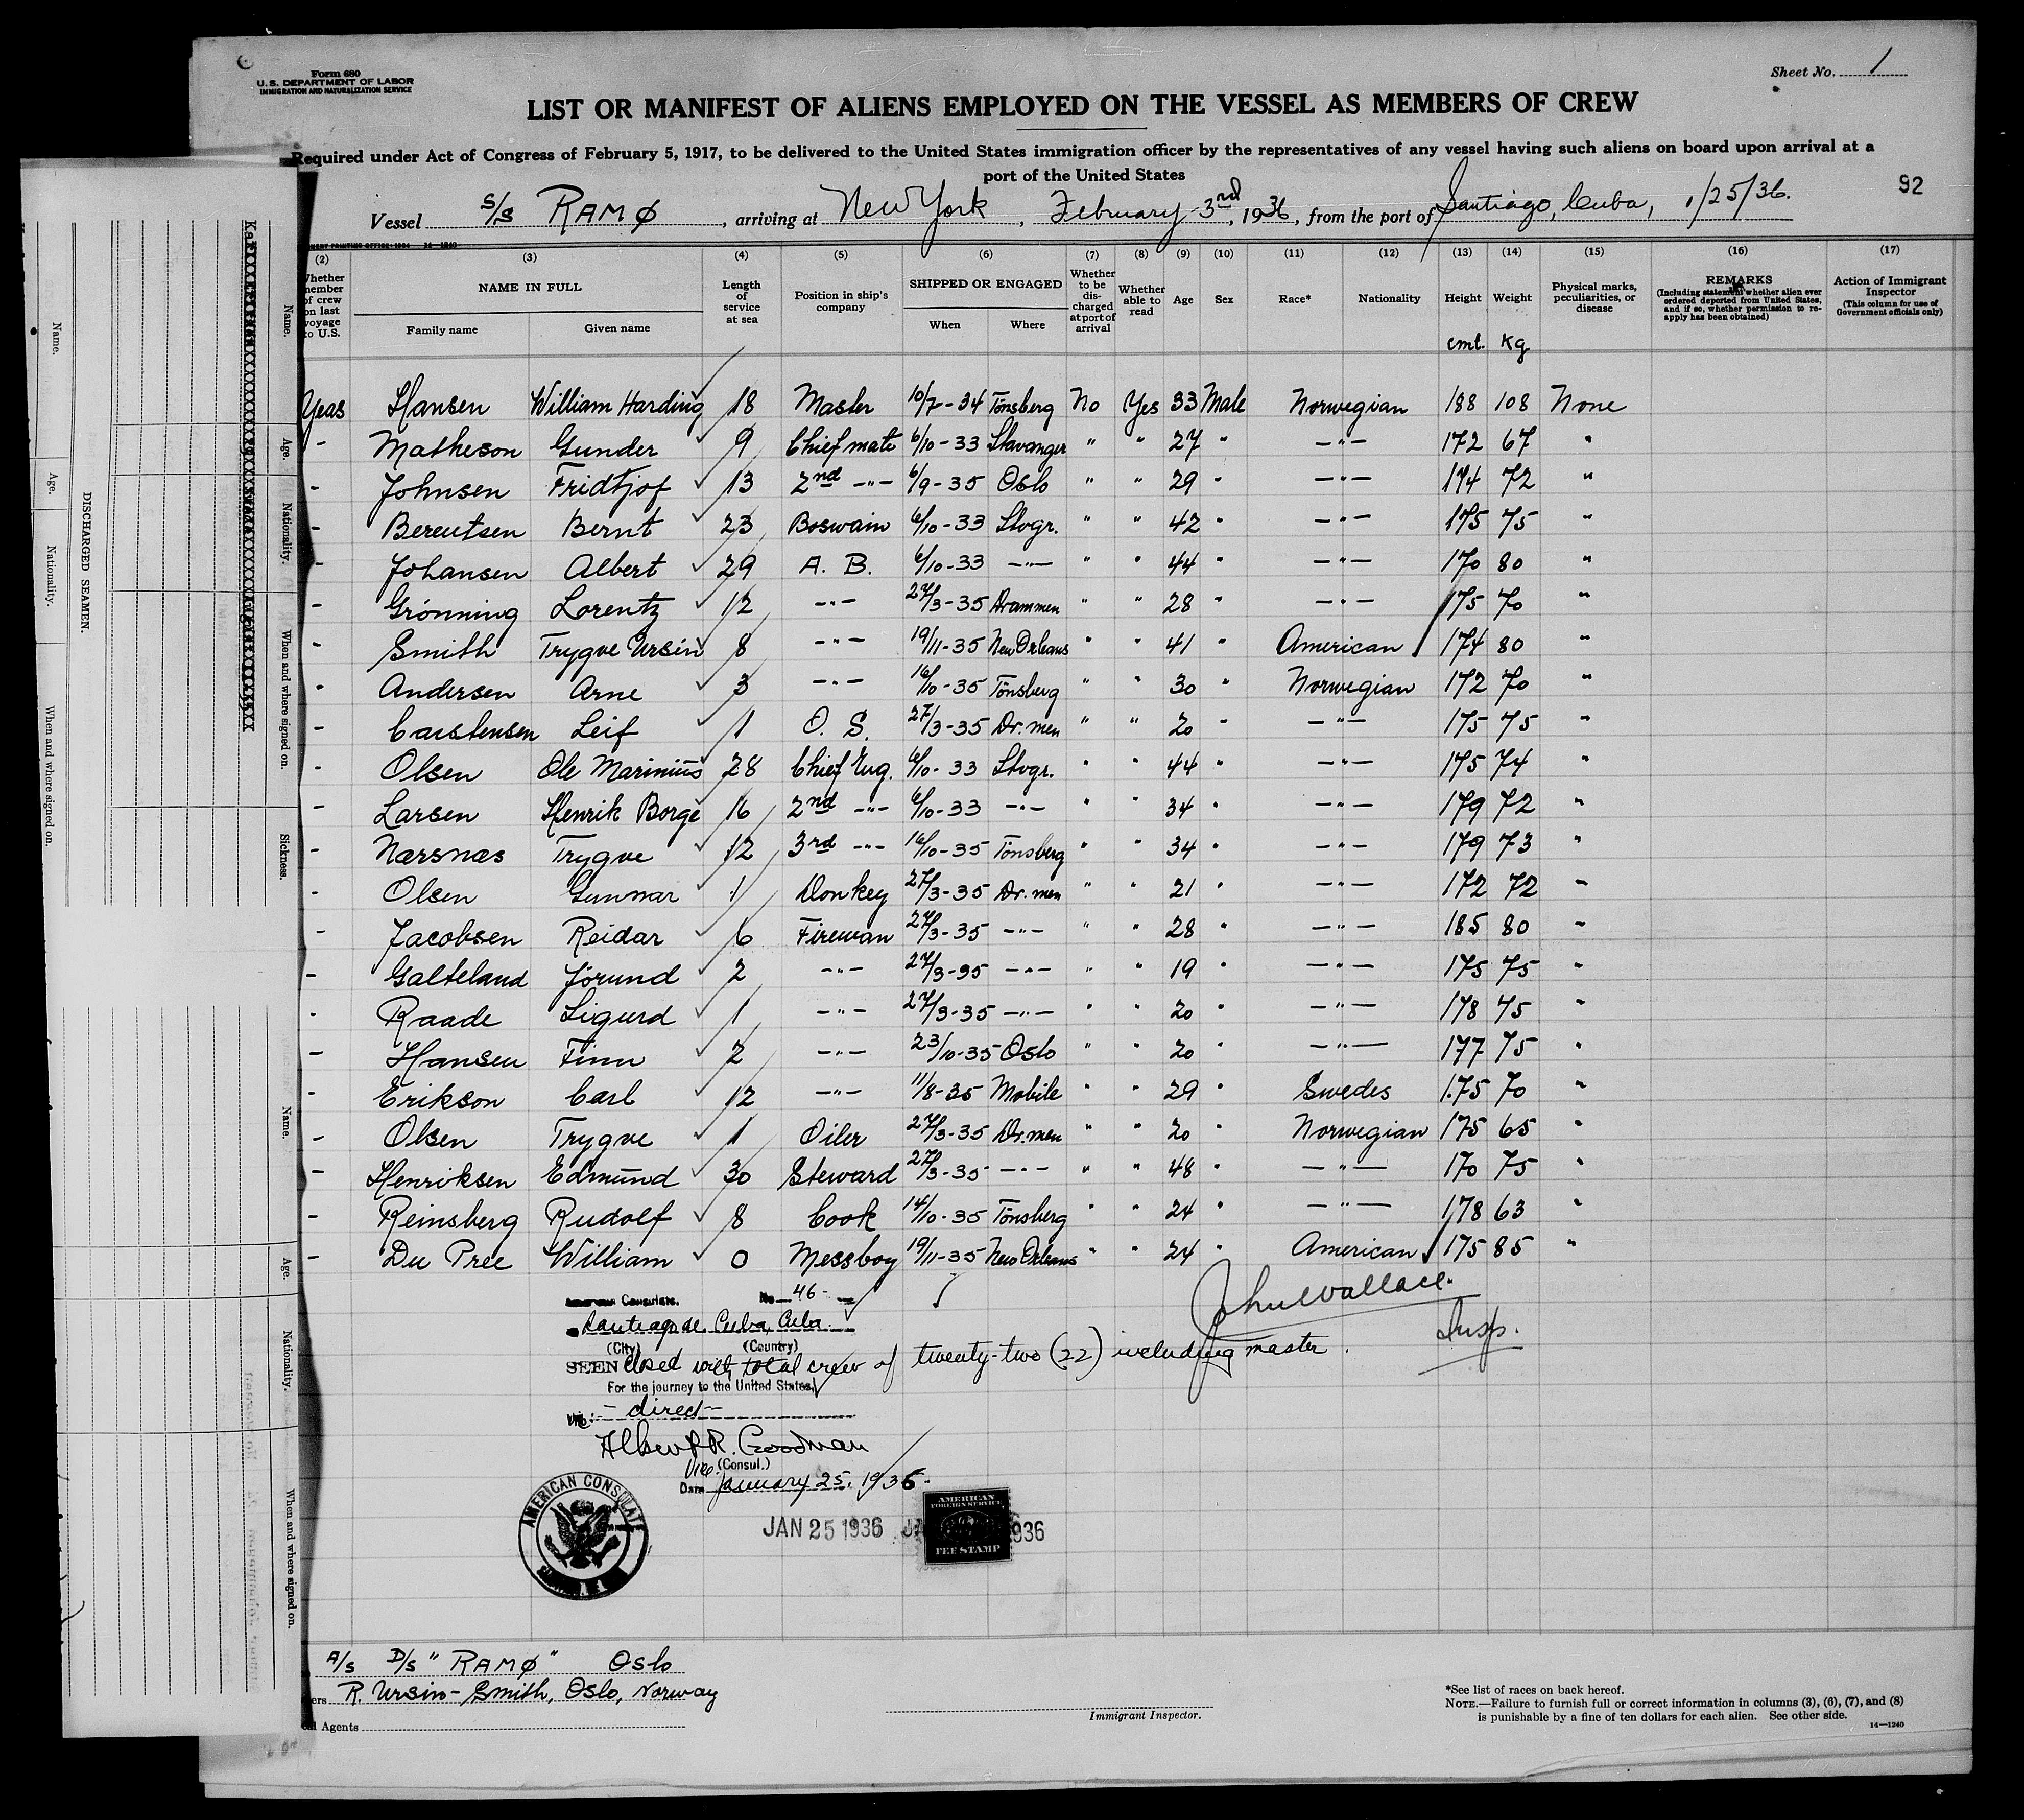 Form 680
U.S. DEPARTMENT OF LABOR
IMMIGRATION AND NATURALIZATION SERVICE
Sheet No. 1
LIST OR MANIFEST OF ALIENS EMPLOYED ON THE VESSEL AS MEMBERS OF CREW
Required under Act of Congress of February 5, 1917, to be delivered to the United States immigration officer by the representatives of any vessel having such aliens on board upon arrival at a
port of the United States
92
Vessel S/S RAMØ, arriving at New York, February 3rd, 1936, from the port of Santiago, Cuba, 1/25/36.
(2) (3) (4) (5) (6) (7) (8) (9) (10) (11) (12) (13) (14) (15) (16) (17)
Whether member of crew on last voyage to U.S.
NAME IN FULL
Family name Given name
Length of service at sea
Position in ship's company
SHIPPED OR ENGAGED
When Where
Whether to be discharged at port of arrival
Whether able to read
Age
Sex
Race*
Nationality
Height cmt.
Weight Kg
Physical marks, peculiarities, or disease
REMARKS
(Including statement whether alien ever ordered deported from United States, and if so, whether permission to re-apply has been obtained)
Action of Immigrant Inspector
(This column for use of Government officials only)
Yeas Hansen William Harding 18 Master 10/7-34 Tönsberg No Yes 33 Male Norwegian 188 108 None
- Matheson Gunder 9 Chief mate 6/10-33 Stavanger " " 27 " -"- 172 67 "
- Johnsen Fridtjof 13 2nd -"- 6/9-35 Oslo " " 29 " -"- 174 72 "
- Berentsen Bernt 23 Boswain 6/10-33 Stvgr. " " 42 " -"- 175 75 "
- Johansen Albert 29 A. B. 6/10-33 -"- " " 44 " -"- 170 80 "
- Grönning Lorentz 12 -"- 27/3-35 Drammen " " 28 " -"- 175 70 "
- Smith Trygve Ursin 8 -"- 19/11-35 New Orleans " " 41 " American 174 80 "
- Andersen Arne 3 -"- 16/10-35 Tönsberg " " 30 " Norwegian 172 70 "
- Carstensen Leif 1 O. S. 27/3-35 Dr. men " " 20 " -"- 175 75 "
- Olsen Ole Marinius 28 Chief Eng. 6/10-33 Stvgr. " " 44 " -"- 175 74 "
- Larsen Henrik Borge 16 2nd -"- 6/10-33 -"- " " 34 " -"- 179 72 "
- Narsnas Trygve 12 3rd -"- 16/10-35 Tönsberg " " 34 " -"- 179 73 "
- Olsen Gunnar 1 Donkey 27/3-35 Dr. men " " 21 " -"- 172 72 "
- Jacobsen Reidar 6 Fireman 27/3-35 -"- " " 28 " -"- 185 80 "
- Galteland Jörund 2 -"- 27/3-35 -"- " " 19 " -"- 175 75 "
- Raade Sigurd 1 -"- 27/3-35 -"- " " 20 " -"- 178 75 "
- Hansen Finn 2 -"- 23/10-35 Oslo " " 20 " -"- 177 75 "
- Erikson Carl 12 -"- 11/8-35 Mobile " " 29 " Swedes 175 70 "
- Olsen Trygve 1 Oiler 27/3-35 Dr. men " " 20 " Norwegian 175 65 "
- Henriksen Edmund 30 Steward 27/3-35 -"- " " 48 " -"- 170 75 "
- Reinsberg Rudolf 8 Cook 14/10-35 Tönsberg " " 24 " -"- 178 63 "
- Du Pree William 0 Messboy 19/11-35 New Orleans " " 24 " American 175 85 "
American Consulate. No 46-
John Wallace.
Insp.
Santiago de Cuba, Cuba
(City) (Country)
SEEN Closed with total crew of twenty-two (22) including master.
For the journey to the United States,
Via: - direct -
Albert R. Goodman
Vice (Consul.)
Date January 25, 1936-
AMERICAN CONSULATE
JAN 25 1936
1936
AMERICAN
FOREIGN SERVICE
FEE STAMP
A/S D/S "RAMØ" Oslo
R. Ursin-Smith, Oslo, Norway
Agents
Immigrant Inspector.
*See list of races on back hereof.
NOTE.—Failure to furnish full or correct information in columns (3), (6), (7), and (8)
is punishable by a fine of ten dollars for each alien. See other side.
14—1240
DISCHARGED SEAMEN.
Name.
Age.
Nationality.
When and where signed on.
Name.
Age.
Nationality.
When and where signed on.
Sickness.
Name.
Age.
Nationality.
When and where signed on.